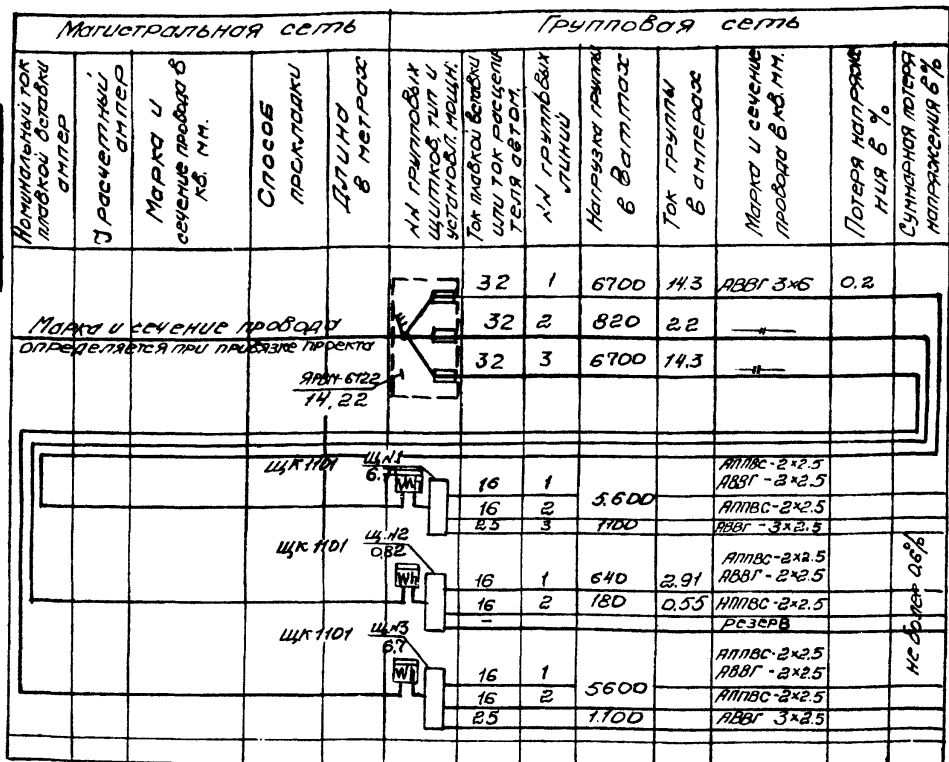 Магистральная сеть
Групповая сеть
Номинальный ток
плавкой вставки
ампер
J расчетный
ампер
Марка и
сечение провода в
кв. мм.
Способ
прокладки
Длина
в метрах
NN групповых
щитков, тип и
установл. мощн.
Ток плавкой вставки
или ток расцепи
теля автом.
NN групповых
линий
Нагрузка группы
в ваттах
Ток группы
в амперах
Марка и сечение
провода в кв. мм.
Потеря напряже
ния в %
Суммарная потеря
напряжения в %
32 1 6700 14.3 АВВГ 3×6 0.2
Марка и сечение провода
определяется при привязке проекта
32 2 820 22 —〃—
32 3 6700 14.3 —〃—
14,22
ЩК 1101 Щ.N1
6.7
Wh
АППВС-2×2.5
16 1 5.600 АВВГ-2×2.5
16 2 АППВС-2×2.5
25 3 1100 АВВГ-3×2.5
ЩК 1101 Щ.N2
0,82
Wh
АППВС-2×2.5
16 1 640 2.91 АВВГ-2×2.5
16 2 180 0.55 АППВС-2×2.5
– резерв
ЩК 1101 Щ.N3
6.7
Wh
АППВС-2×2.5
16 1 5600 АВВГ-2×2.5
16 2 АППВС-2×2.5
25 1.100 АВВГ 3×2.5
не более 0.6%